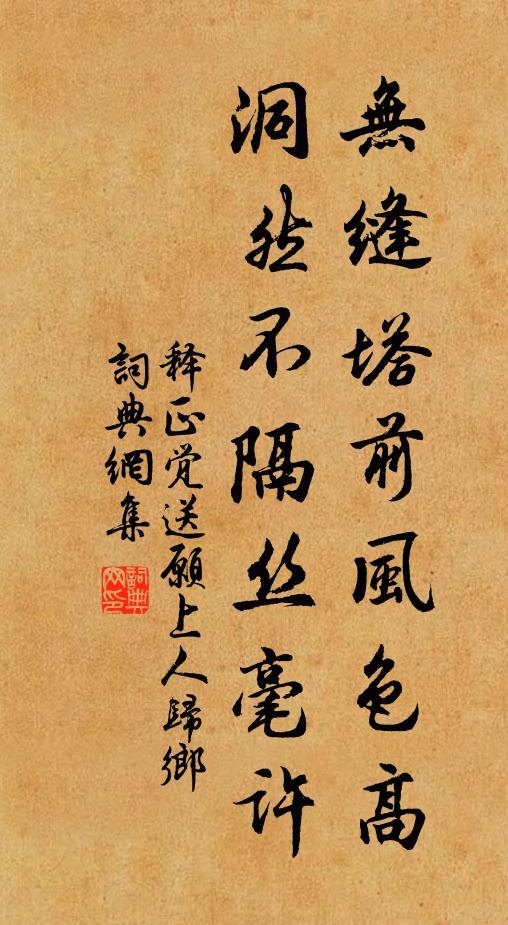 無縫塔前風色高
洞然不隔丝毫许
释正觉送願上人歸鄉
詞典網集
詞典网印